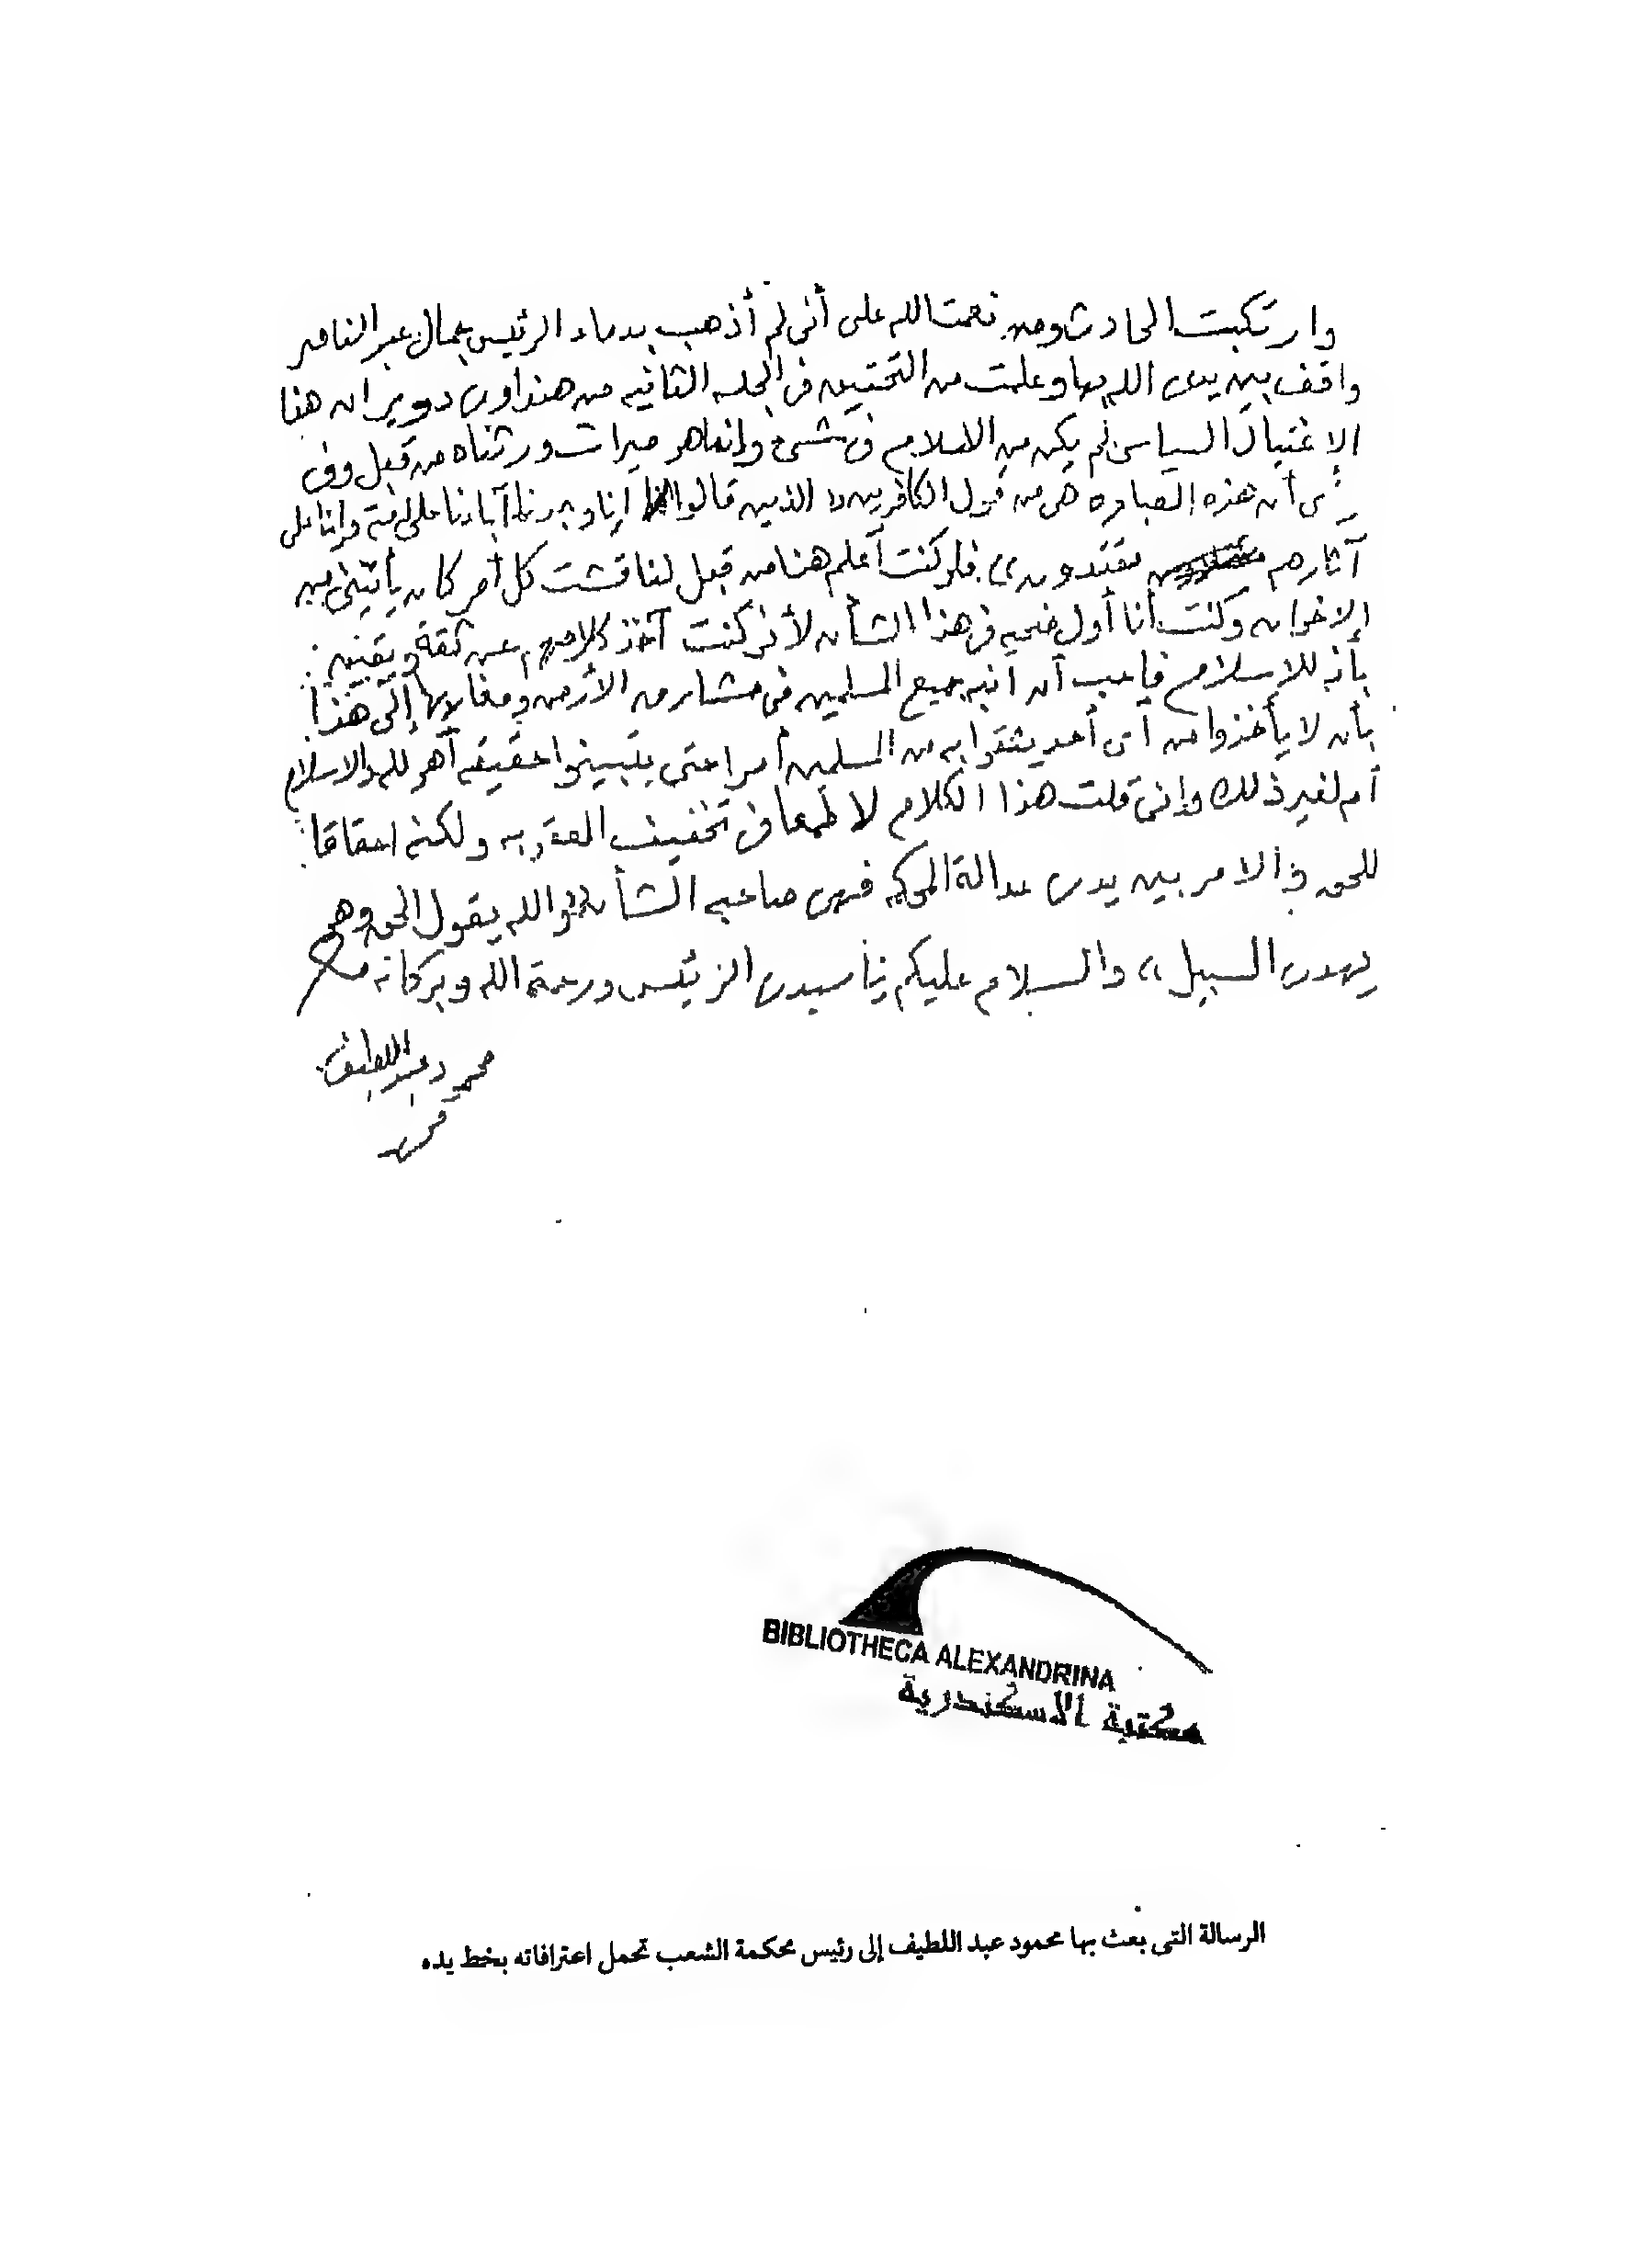 وارتكبت الحادث ومن نعمت الله على أنى لم أذهب بدماء الرئيس جمال عبد الناصر
واقف بين يدى الله بها وعلمت من التحقيق فى الجلسه الثانيه من هنداوى دوير ان هذا
الاغتيال السياسى لم يكن من الاسلام فى شىء وإنما هو ميراث ورثناه من قبل وفى
أن هذه العباره هى من قول الكافرين الذين قالوا إنا وجدنا آباءنا على أمة وإنا على
آثارهم مقتدون فلو كنت أعلم هذا من قبل لناقشت كل أمر كان يأتينى من
الاخوان وكنت أنا أول ضحيه فى هذا الشأن لأنى كنت آخذ كلامهم عن ثقة ويقين
بأنه للاسلام فأحب أن انبه جميع المسلمين فى مشارق الأرض ومغاربها إلى هذا
بأن لا يأخذوا من أى أحد يثقوا به من المسلمين أمرا حتى يتبينوا حقيقته أهو لله والاسلام
أم لغير ذلك وإنى قلت هذا الكلام لا طمعا فى تخفيف العقوبه ولكنه احقاقا
للحق والامر بين يدى عدالة المحكمه فهى صاحبه الشأن والله يقول الحق وهو
يهدى السبيل والسلام عليكم يا سيدى الرئيس ورحمة الله وبركاته
محمود عبد اللطيف
BIBLIOTHECA ALEXANDRINA
مكتبة الاسكندرية
الرسالة التى بعث بها محمود عبد اللطيف إلى رئيس محكمة الشعب تحمل اعترافاته بخط يده